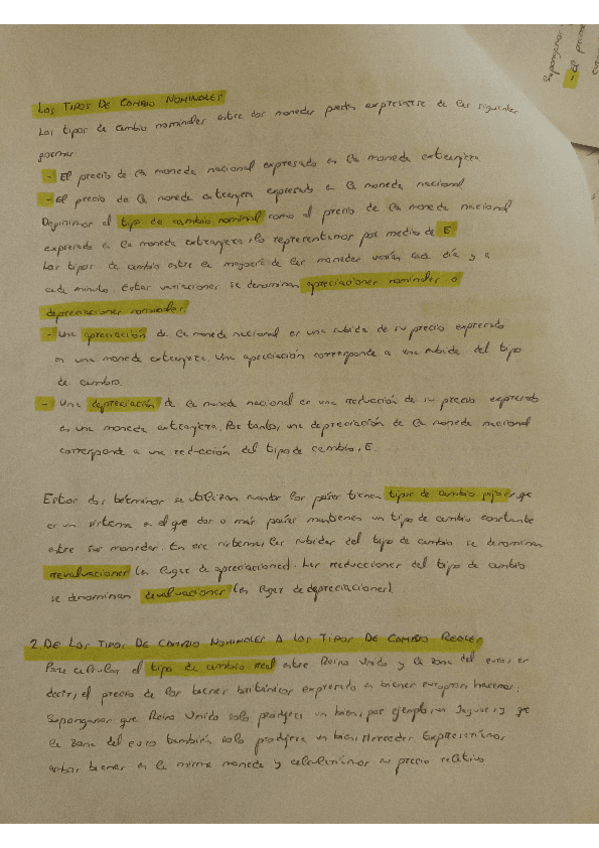 LOS TIPOS DE CAMBIO NOMINALES
Los tipos de cambio nominales entre dos monedas pueden expresarse de las siguientes
formas:
- El precio de la moneda nacional expresado en la moneda extranjera
- El precio de la moneda extranjera expresado en la moneda nacional
Definimos el tipo de cambio nominal como el precio de la moneda nacional
expresado en la moneda extranjera, lo representamos por medio de E
Los tipos de cambio entre la mayoría de las monedas varían cada día y a
cada minuto. Estas variaciones se denominan apreciaciones nominales o
depreciaciones nominales.
- Una apreciación de la moneda nacional es una subida de su precio expresado
en una moneda extranjera. Una apreciación corresponde a una subida del tipo
de cambio.
- Una depreciación de la moneda nacional es una reducción de su precio expresado
en una moneda extranjera. Por tanto, una depreciación de la moneda nacional
corresponde a una reducción del tipo de cambio, E.
Estos dos términos se utilizan cuando los países tienen tipos de cambio fijos: que
es un sistema en el que dos o más países mantienen un tipo de cambio constante
entre sus monedas. En ese sistema, las subidas del tipo de cambio se denominan
revaluaciones (en lugar de apreciaciones). Las reducciones del tipo de cambio
se denominan devaluaciones (en lugar de depreciaciones).
2. DE LOS TIPOS DE CAMBIO NOMINALES A LOS TIPOS DE CAMBIO REALES
Para calcular el tipo de cambio real entre Reino Unido y la zona del euro, es
decir, el precio de los bienes británicos expresado en bienes europeos hacemos:
Supongamos que Reino Unido solo produjera un bien, por ejemplo, un Jaguar, y que
la zona del euro también solo produjera un bien, Mercedes. Expresaríamos
ambos bienes en la misma moneda y calcularíamos su precio relativo
Supongamos
- El prime